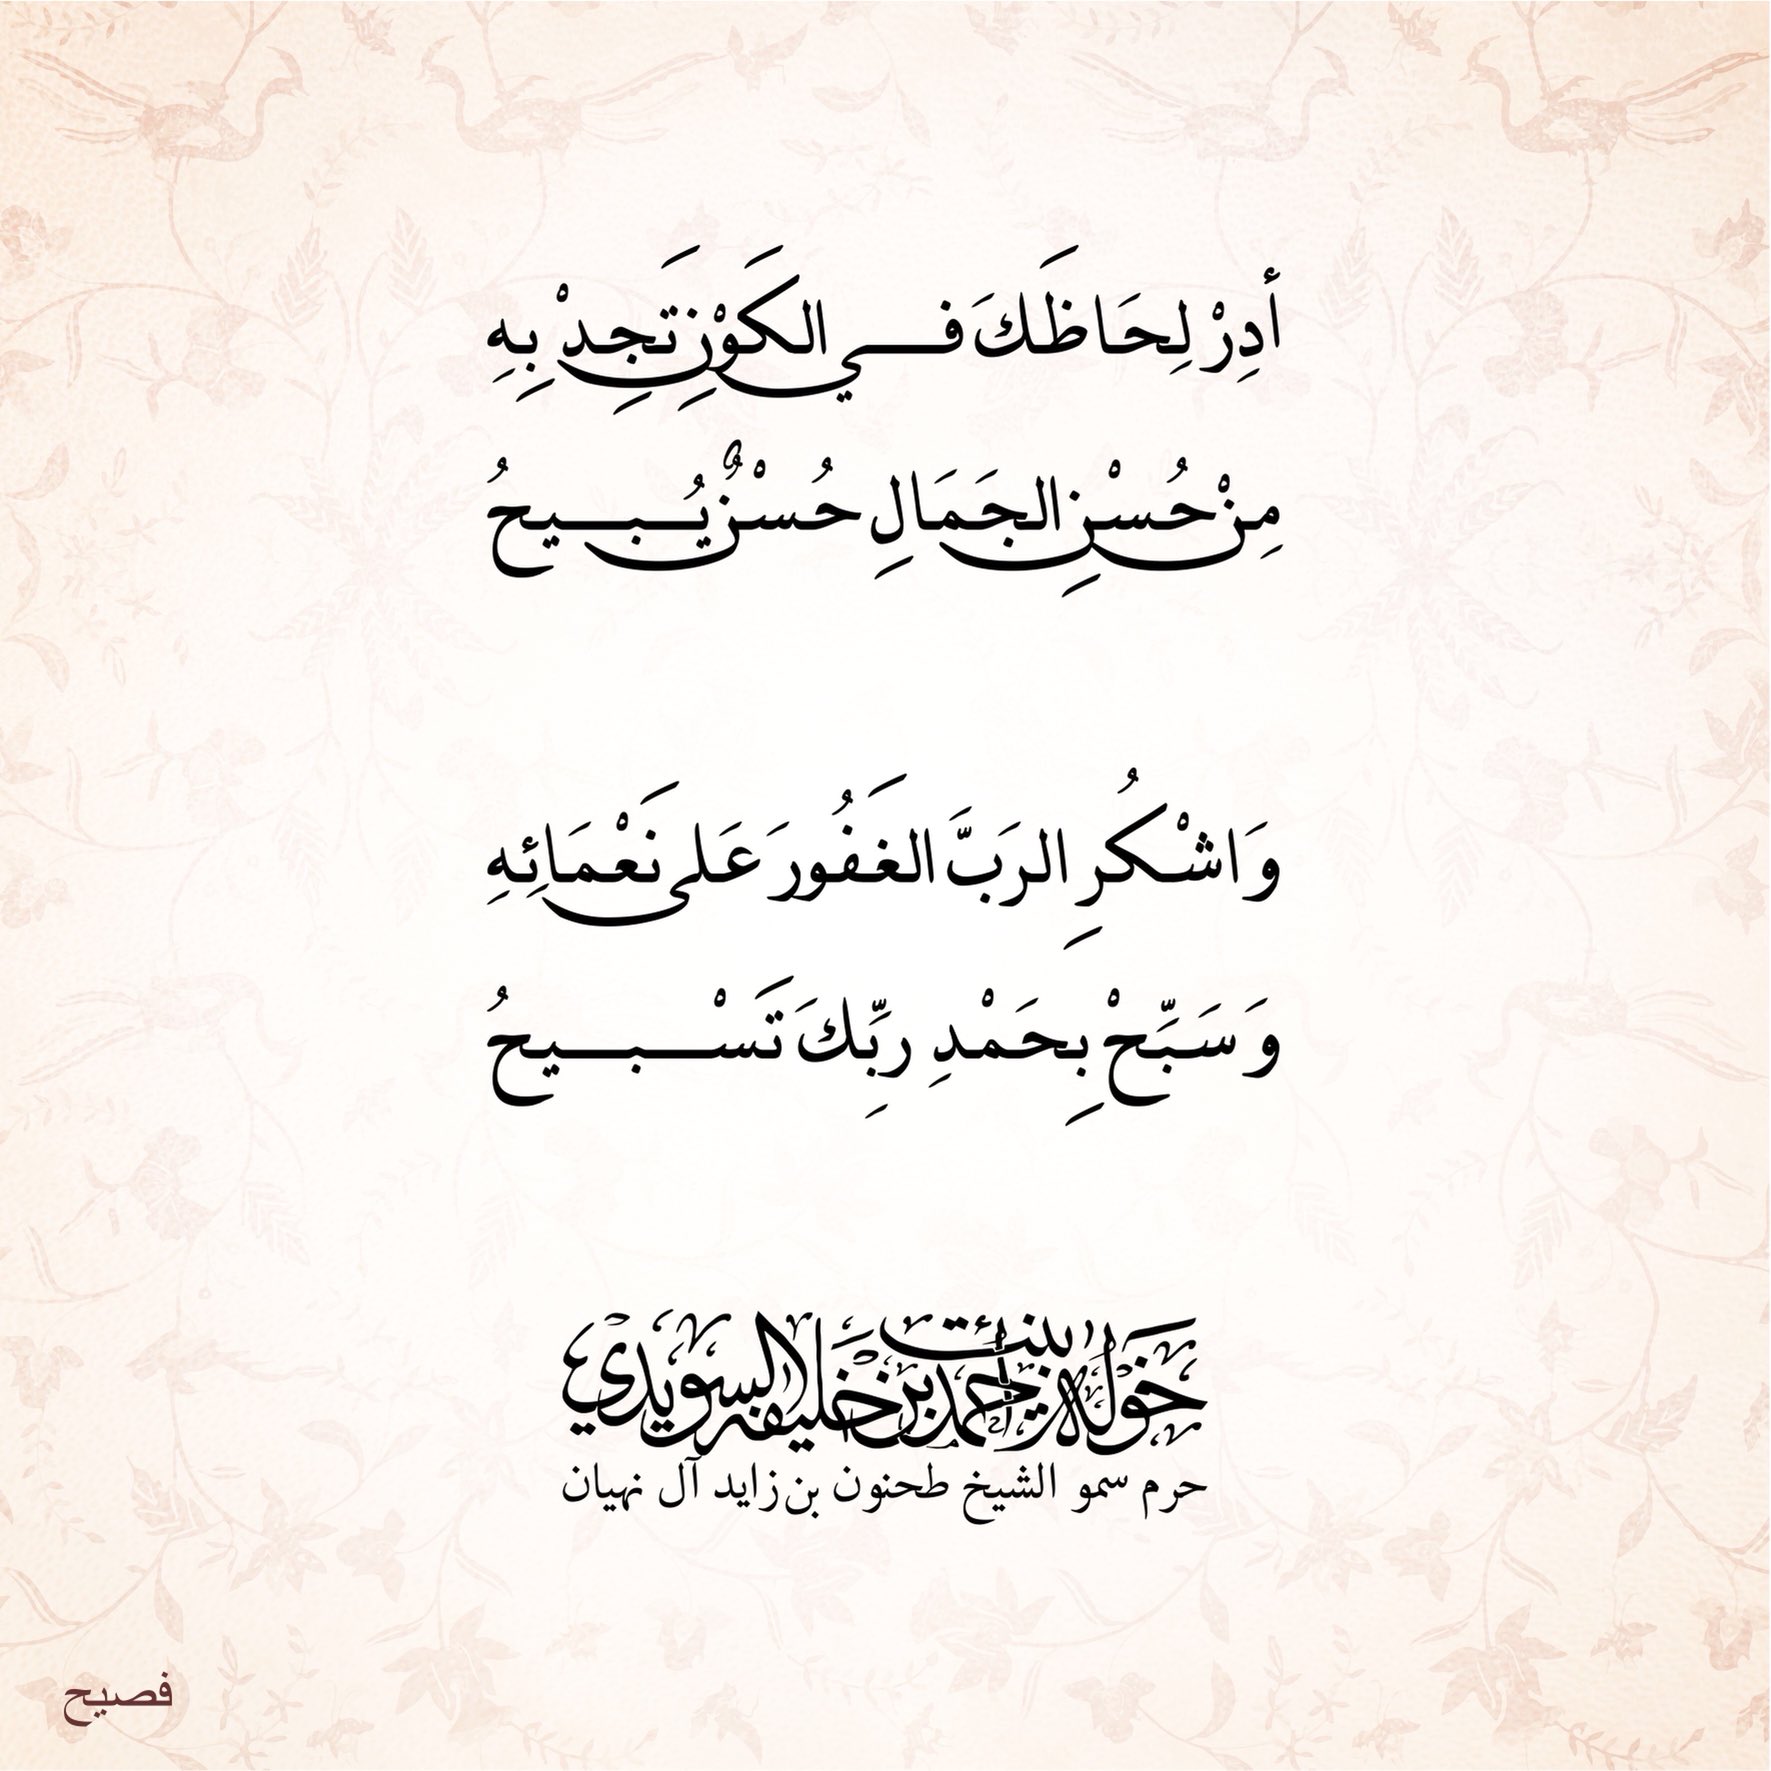 أدِرْ لِحَاظَكَ فــي الكَوْنِ تَجِدْ بِهِ
مِنْ حُسْنِ الجَمَالِ حُسْنٌ يُبــيحُ
وَاشْكُرِ الرَبَّ الغَفُورَ عَلى نَعْمَائِهِ
وَسَبِّحْ بِحَمْدِ ربِّكَ تَسْبــيحُ
خَوله بنت أحمد بن خليفه السويدي
حرم سمو الشيخ طحنون بن زايد آل نهيان
فصيح